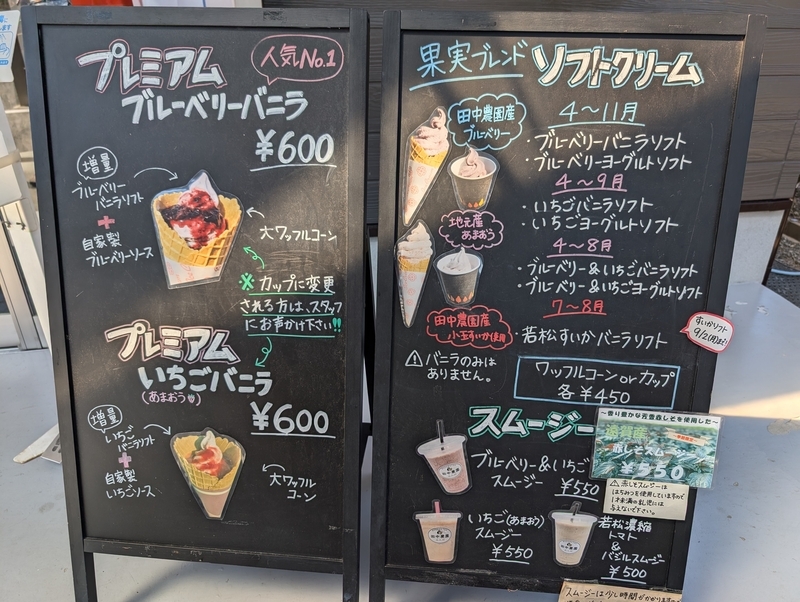 プレミアム
ブルーベリーバニラ
人気No.1
¥600
増量
ブルーベリー
バニラソフト
+
自家製
ブルーベリーソース
大ワッフルコーン
※カップに変更
される方は、スタッフ
にお声かけ下さい!!
プレミアム
いちごバニラ
(あまおう)
¥600
増量
いちご
バニラソフト
+
自家製
いちごソース
大ワッフル
コーン
果実ブレンド ソフトクリーム
田中農園産
ブルーベリー
4～11月
・ブルーベリーバニラソフト
・ブルーベリーヨーグルトソフト
4～9月
地元産
あまおう
・いちごバニラソフト
・いちごヨーグルトソフト
4～8月
・ブルベリー&いちごバニラソフト
・ブルベリー&いちごヨーグルトソフト
7～8月
田中農園産
小玉すいか使用
若松すいかバニラソフト
すいかソフト
9/2(月)まで
⚠バニラのみは
ありません。
ワッフルコーンorカップ
各¥450
スムージー
ブルベリー&いちご
スムージー
¥550
～香り豊かな芳香赤しそを使用した～
遠賀産
赤しそスムージー
¥550
⚠赤しそスムージーは
はちみつを使用していますので
1才未満の乳児には
与えないで下さい。
いちご(あまおう)
スムージー
¥550
若松濃縮
トマト
&
バジルスムージー
¥500
スムージーは少し時間がかかります